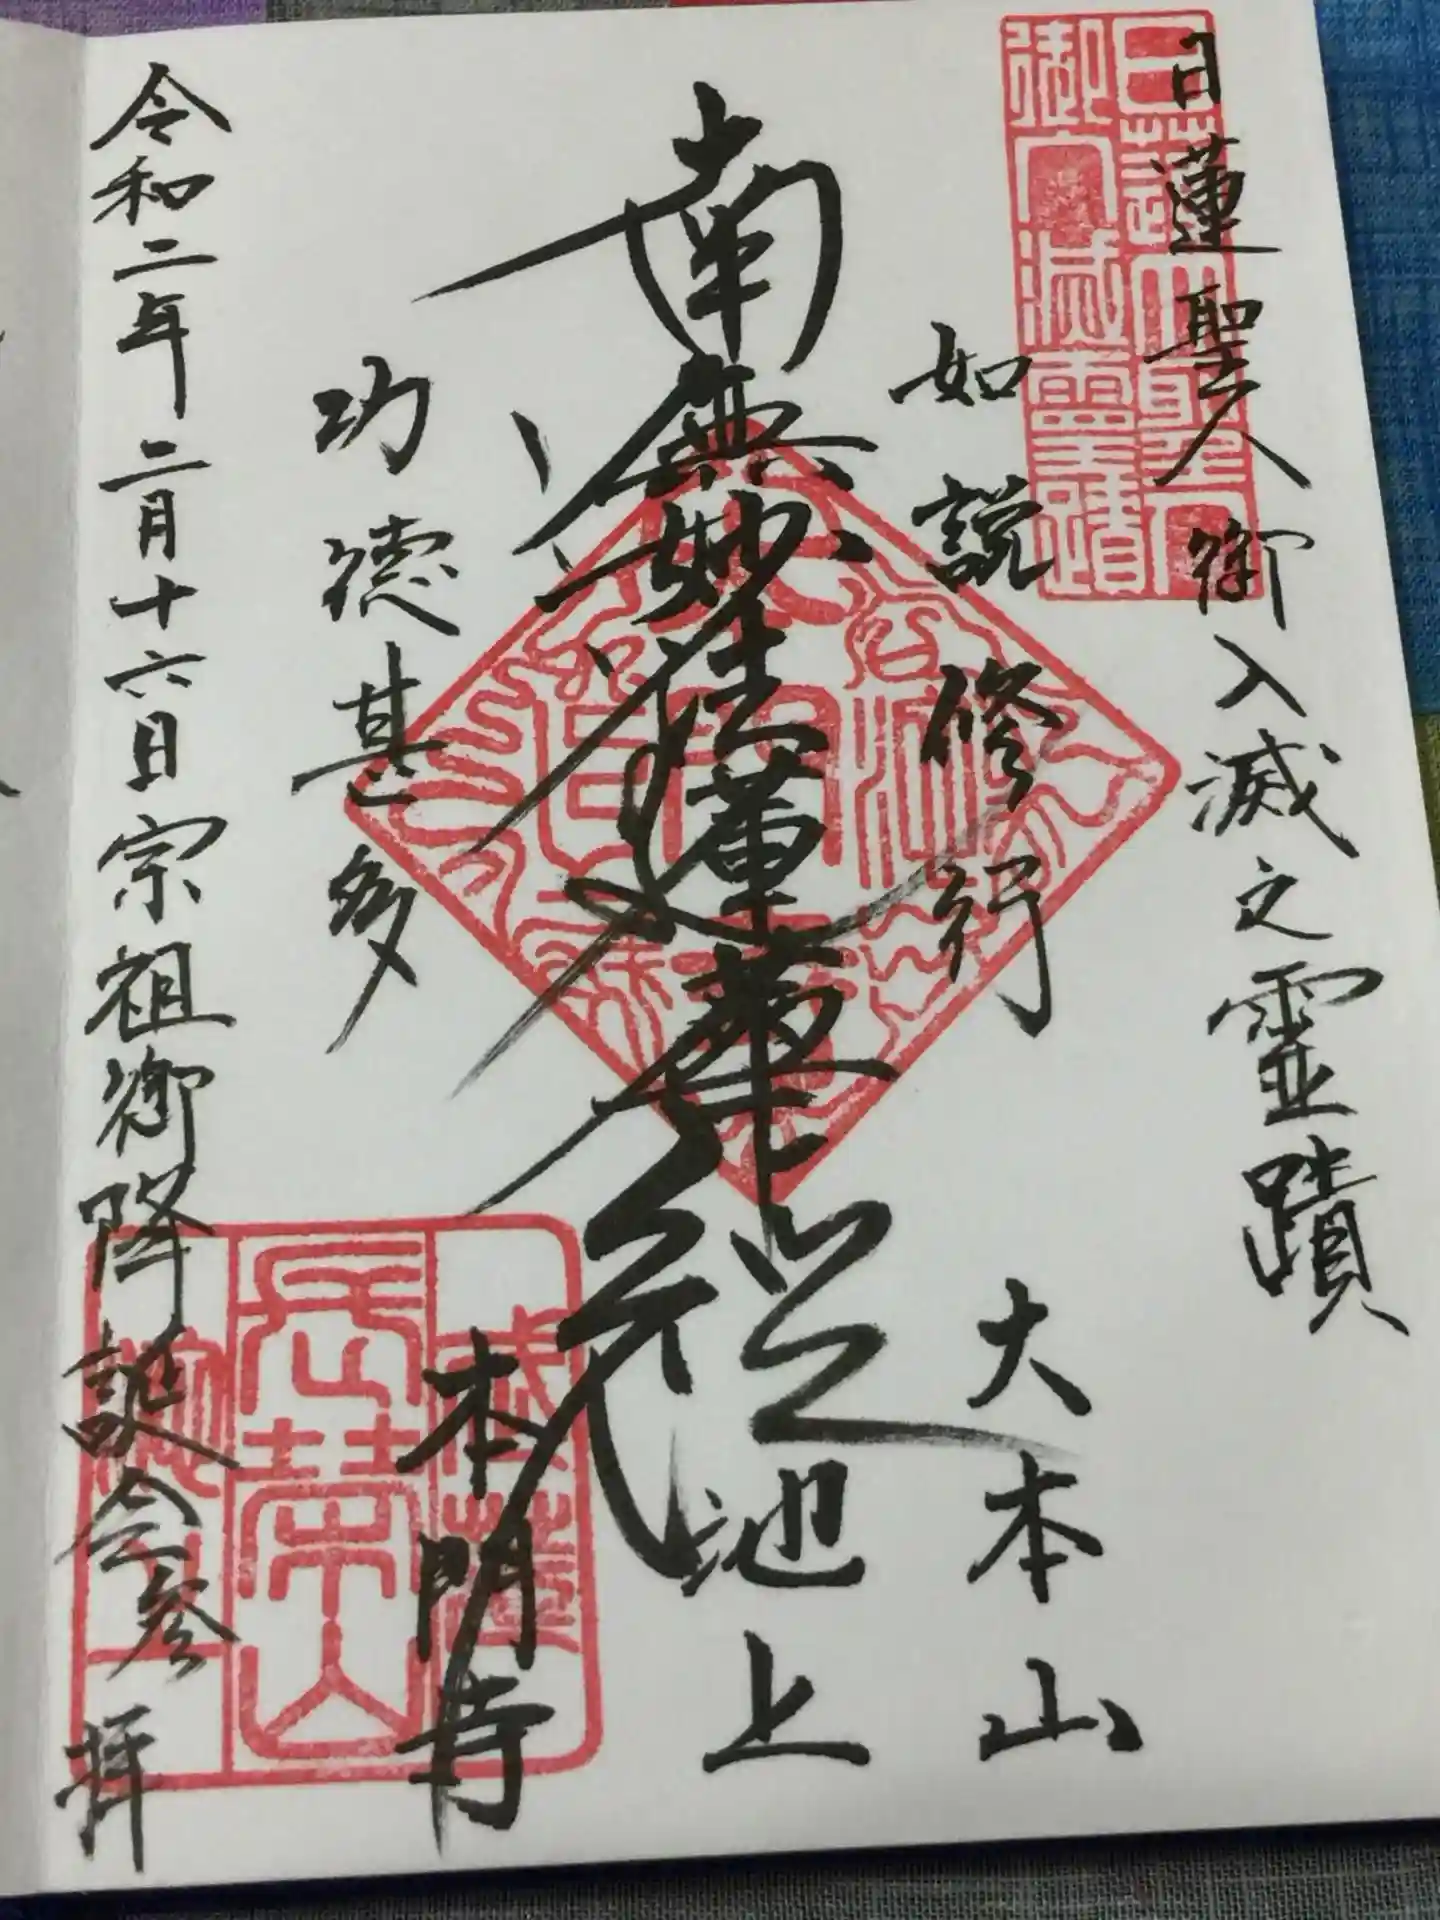 日蓮聖人御入滅之霊蹟
日蓮大聖人
御入滅霊蹟
如説修行
南無妙法蓮華経
功徳甚多
大本山
池上
本門寺
長榮山
令和二年二月十六日宗祖御降誕会参拝